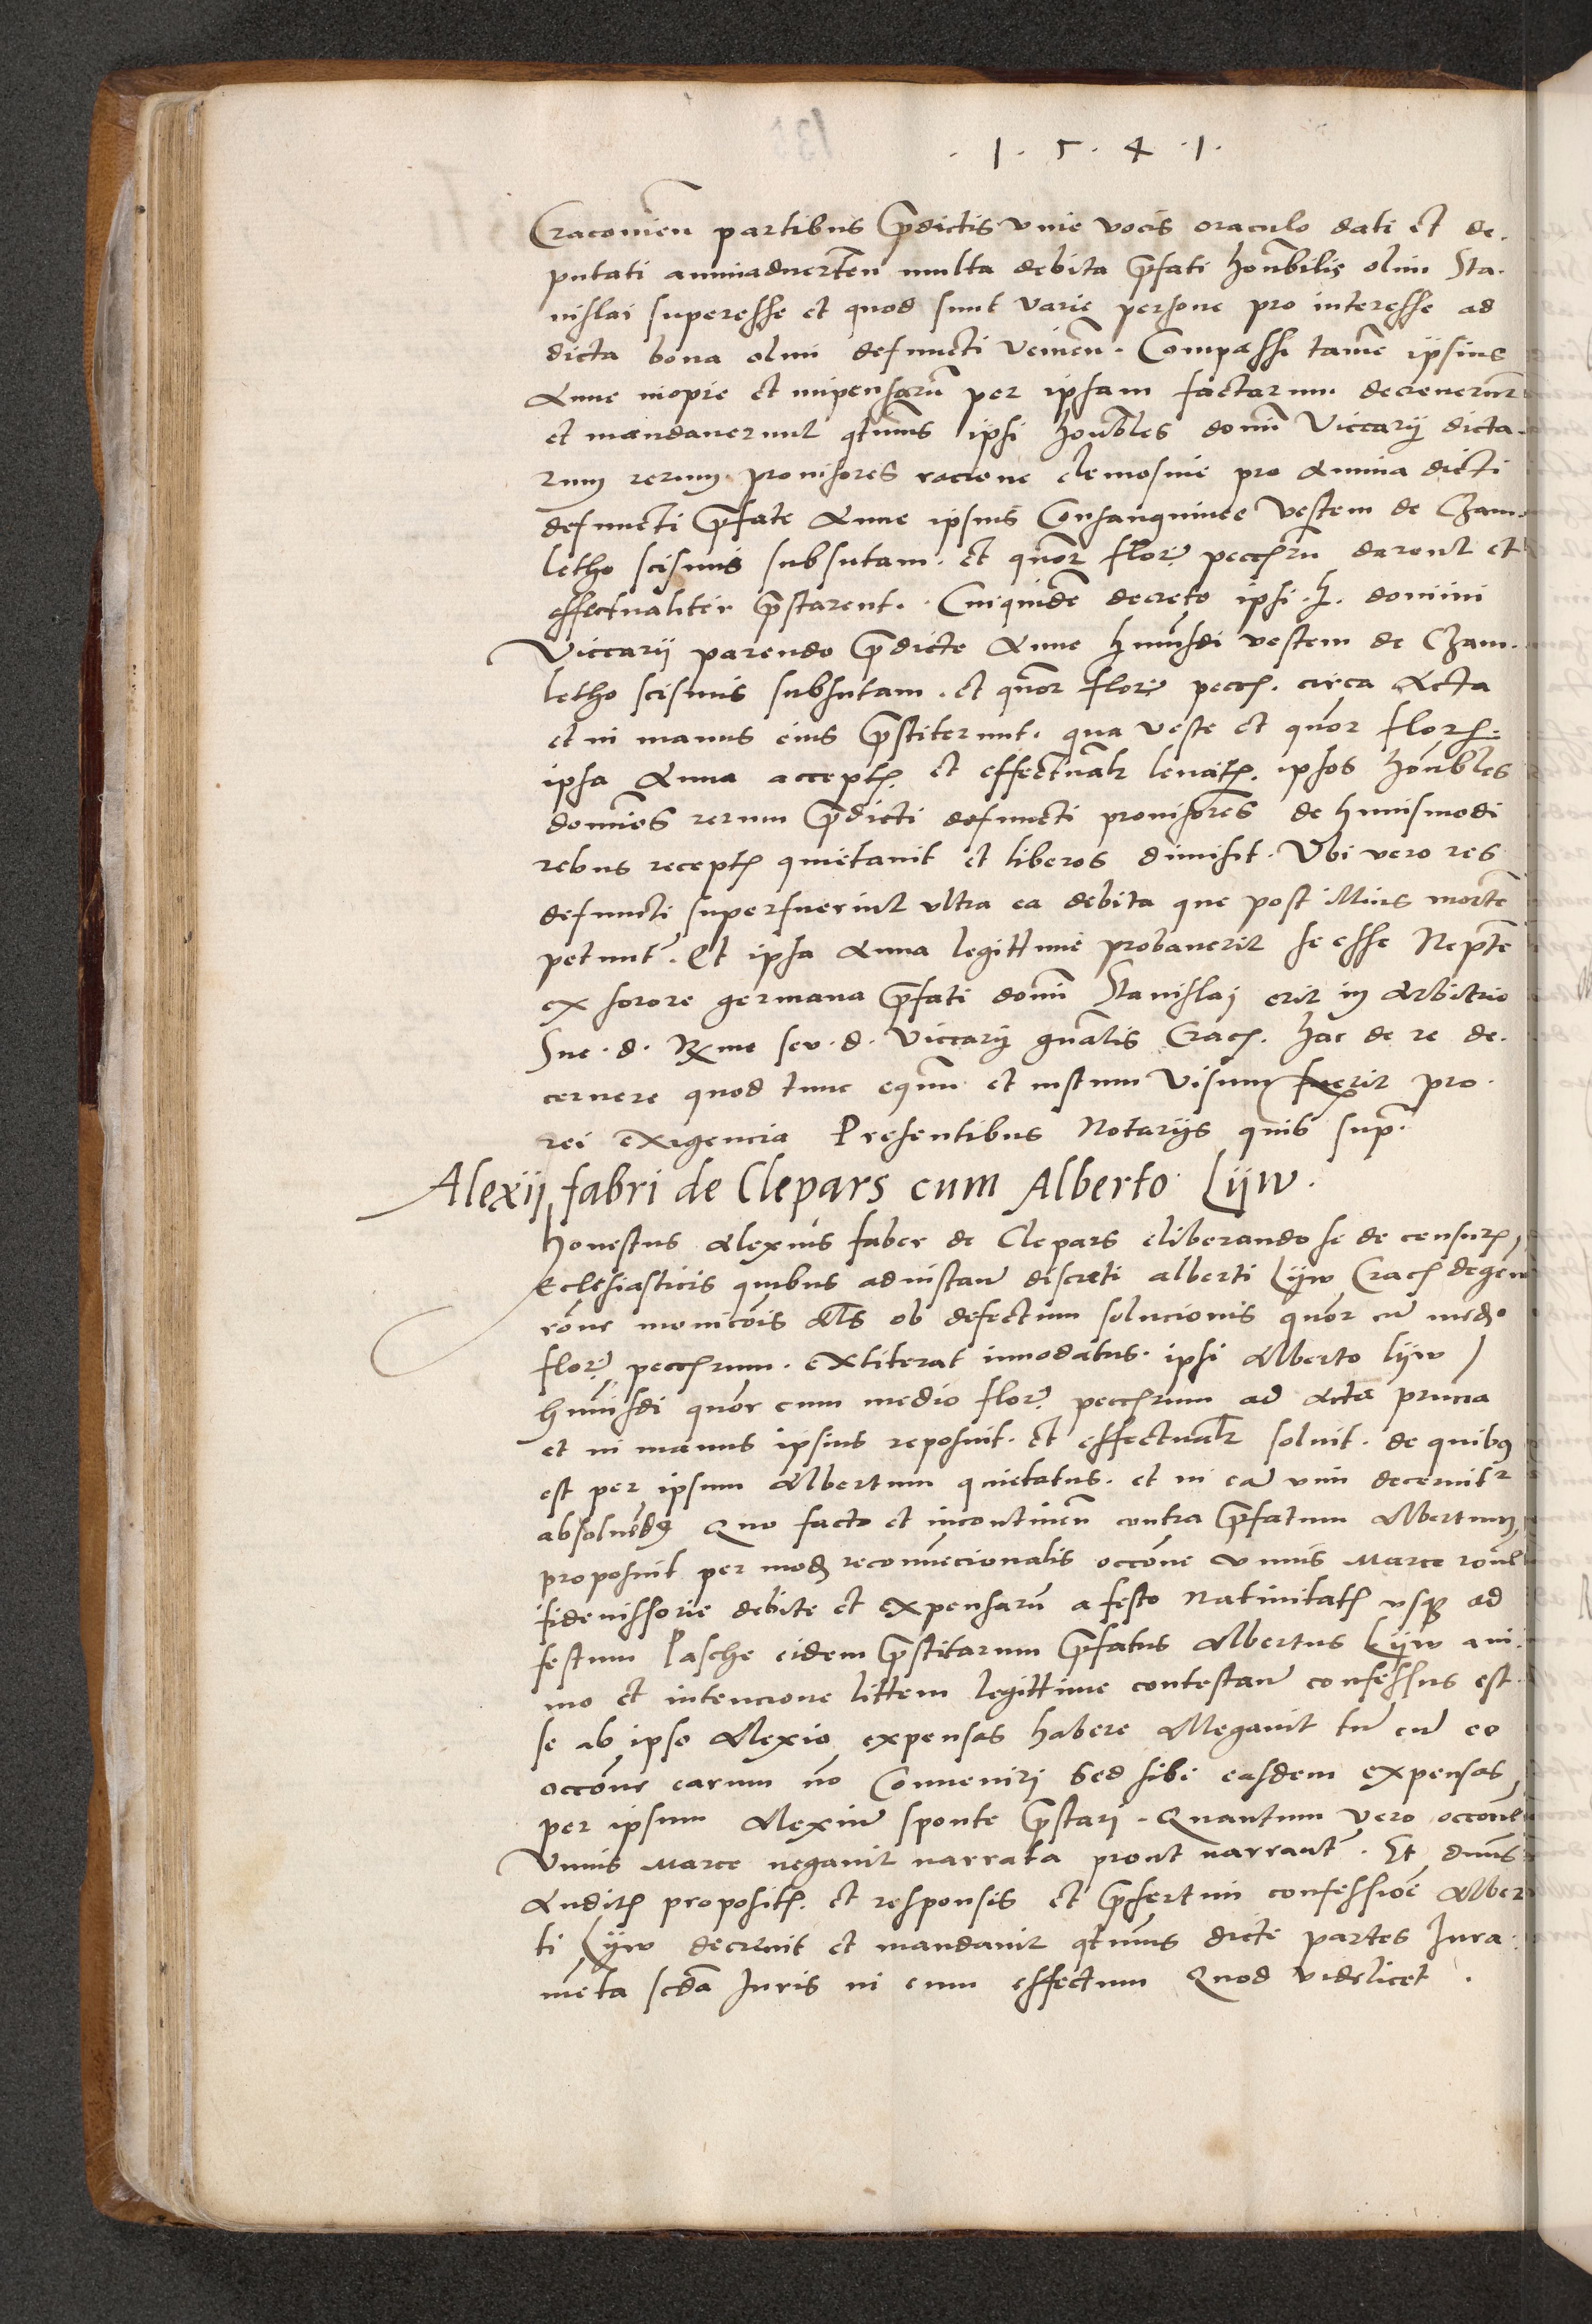 .1.5.4.1.
Cracovien̄ partibus p̄dictis vive vocis oraculo dati et de-
putati animadverten̄ multa debita p̄fati hon̄bilis olim Sta-
nislai superesse et quod sunt varie persone pro interesse ad
dicta bona olim defuncti venien̄. Compassi tamē ipsius
Anne inopie et impensarū per ipsam factarum. decreverūt
et mandaverunt qt̄nus ipsi honōbles domī Viccarÿ dicta-
rum rerum provisores racione elemosine pro anima dicti
defuncti p̄fate Anne ipsius Consanguinee vestem de Czam-
letho scismis subsutam. et quōr flor. pecc. darent et
effectualiter p̄starent. Cuiquidē decreto ipsi .h. domini
Viccarii parendo p̄dicte Anne hm̄ōdi vestem de Czam-
letho scismis subsutam. et quōr flor. pecc. circa Acta
et in manus eius p̄stiterunt. qua veste et quōr flor.
ipsa Anna accept. et effectualr̄ levat. ipsos honōbles
domīos rerum p̄dicti defuncti provisores de huiusmodi
rebus recept. quietavit et liberos dimisit. Ubi vero res
defuncti superfuerint ultra ea debita que post illius mortē
petunt̄. Et ipsa Anna legittime probaverit se esse Neptē
ex sorore germana p̄fati domī Stanislaj erit in Arbitrio
Sue .d. Rx̄me seu .d. Viccarÿ gn̄alis Crac. hac de re de-
cernere quod tunc equū et iustum visum fuerit pro
rei exigencia Presentibus Notarÿs quib sup̄.
Alexii fabri de Clepars cum Alberto Lÿw.
honestus Alexius faber de Clepars eliberando se de censur.
Ecclesiasticis quibus ad instan̄ discreti alberti Lÿw Crac. degen̄
rōne monicōis Als ob defectum solucionis quōr cū medio
flor. pecc. extiterat innodatus. ipsi Alberto lÿw
hm̄ōdi quōr cum medio flor. pecc. ad Acta p̄ntia
et in manus ipsius reposuit. et effectualr̄ solvit. de quibus
est per ipsum Albertum quietatus. et in eā vim decernitr
absolvēdus Quo facto et incontinen̄ contra p̄fatum Albertum
proposuit per mod. reconvēcionalis occōne unius Marce rōne
fideiussorie debite et expensarū a festo Nativitat. usq. ad
festum Pasche eidem p̄stitarum p̄fatus Albertus Lÿw ani-
mo et intencione littem legittime contestan̄ confessus est
se ab ipso Alexio expensas habere Allegavit tn̄ cū eo
occōne earum nō Conveniri Sed sibi easdem expensas
per ipsum Alexiū sponte p̄stari. Quantum vero occōne
Unius Marce negavit narrata prout narrant̄. Et dn̄us
Audit. proposit. et responsis et p̄sertim confessiōe Alber-
ti Lÿw decrevit et mandavit qt̄nus dicte partes Jura-
mēta scdā Juris in eum effectum Quod videlicet